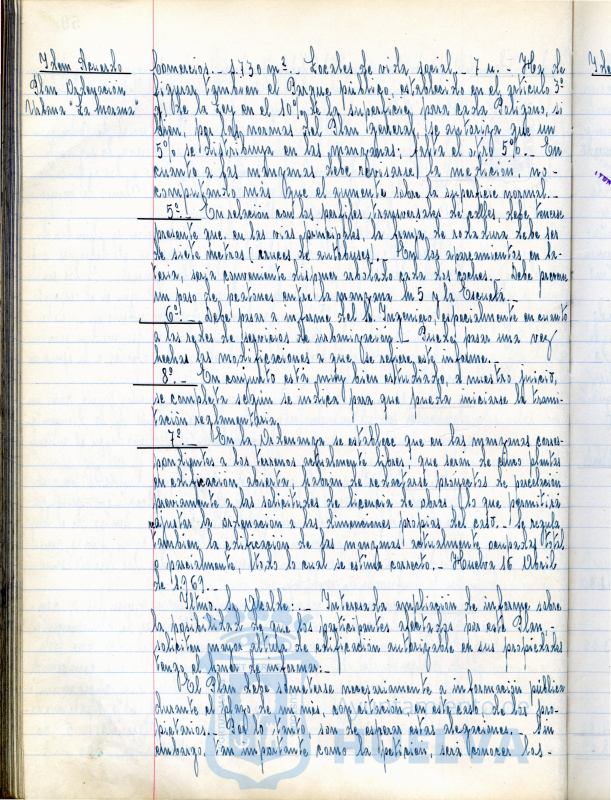 Idem Acuerdo
Plan Ordenación
Urbana "La Morana"
Comercios.- 1.730 m².- Locales de vida social.- 7 u.- Ha de
figurar también el Parque público, establecido en el artículo 3º
de la Ley en el 10% de la superficie, para cada Polígono, si
bien, por las normas del Plan General, se autoriza que un
5% se distribuya en las manzanas; falta el útil 5%.- En
cuanto a las manzanas debe revisarse la medición, no
computando más que el aumento sobre la superficie normal.-
5º.- En relación con los perfiles transversales de calles, debe tenerse
presente que, en las vías principales, la franja de rodadura debe ser
de siete metros (cruces de autobuses).- En los aparcamientos, en ba-
tería, sería conveniente disponer arbolado cada dos coches.- Debe preverse
un paso de peatones entre la manzana M5 y la Escuela.-
6º.- Debe pasar a informe del Sr. Ingeniero, especialmente en cuanto
a las redes de servicios de urbanización.- Puede pasar una vez
hechas las modificaciones a que se refiere este informe.-
8º.- En conjunto está muy bien estudiado, a nuestro juicio,
se completa según se indica para que pueda iniciarse la trami-
tación reglamentaria.
7º.- En la Ordenanza, se establece que en las manzanas corres-
pondientes a los terrenos actualmente libres, que serán de cinco plantas
en edificación abierta, habrán de redactarse proyectos de parcelación
previamente a las solicitudes de licencia de obras, lo que permitirá
ajustar la ordenación a las dimensiones propias del caso.- Se regula
también la edificación de las manzanas actualmente ocupadas, total
o parcialmente, todo lo cual se estima correcto.- Huelva 16 Abril
de 1.969.-
Iltmo. Sr. Alcalde:.- Interesada ampliación de informe sobre
la posibilidad de que los participantes afectados por este Plan,-
soliciten mayor altura de edificación autorizable en sus propiedades
tengo el honor de informar:-
El Plan debe someterse necesariamente a información pública
durante el plazo de un mes, con citación en este caso de los pro-
pietarios.- Por lo tanto, son de esperar estas alegaciones.- Sin
embargo, tan importante como la petición, será conocer los-
Ayuntamiento de
HUELVA